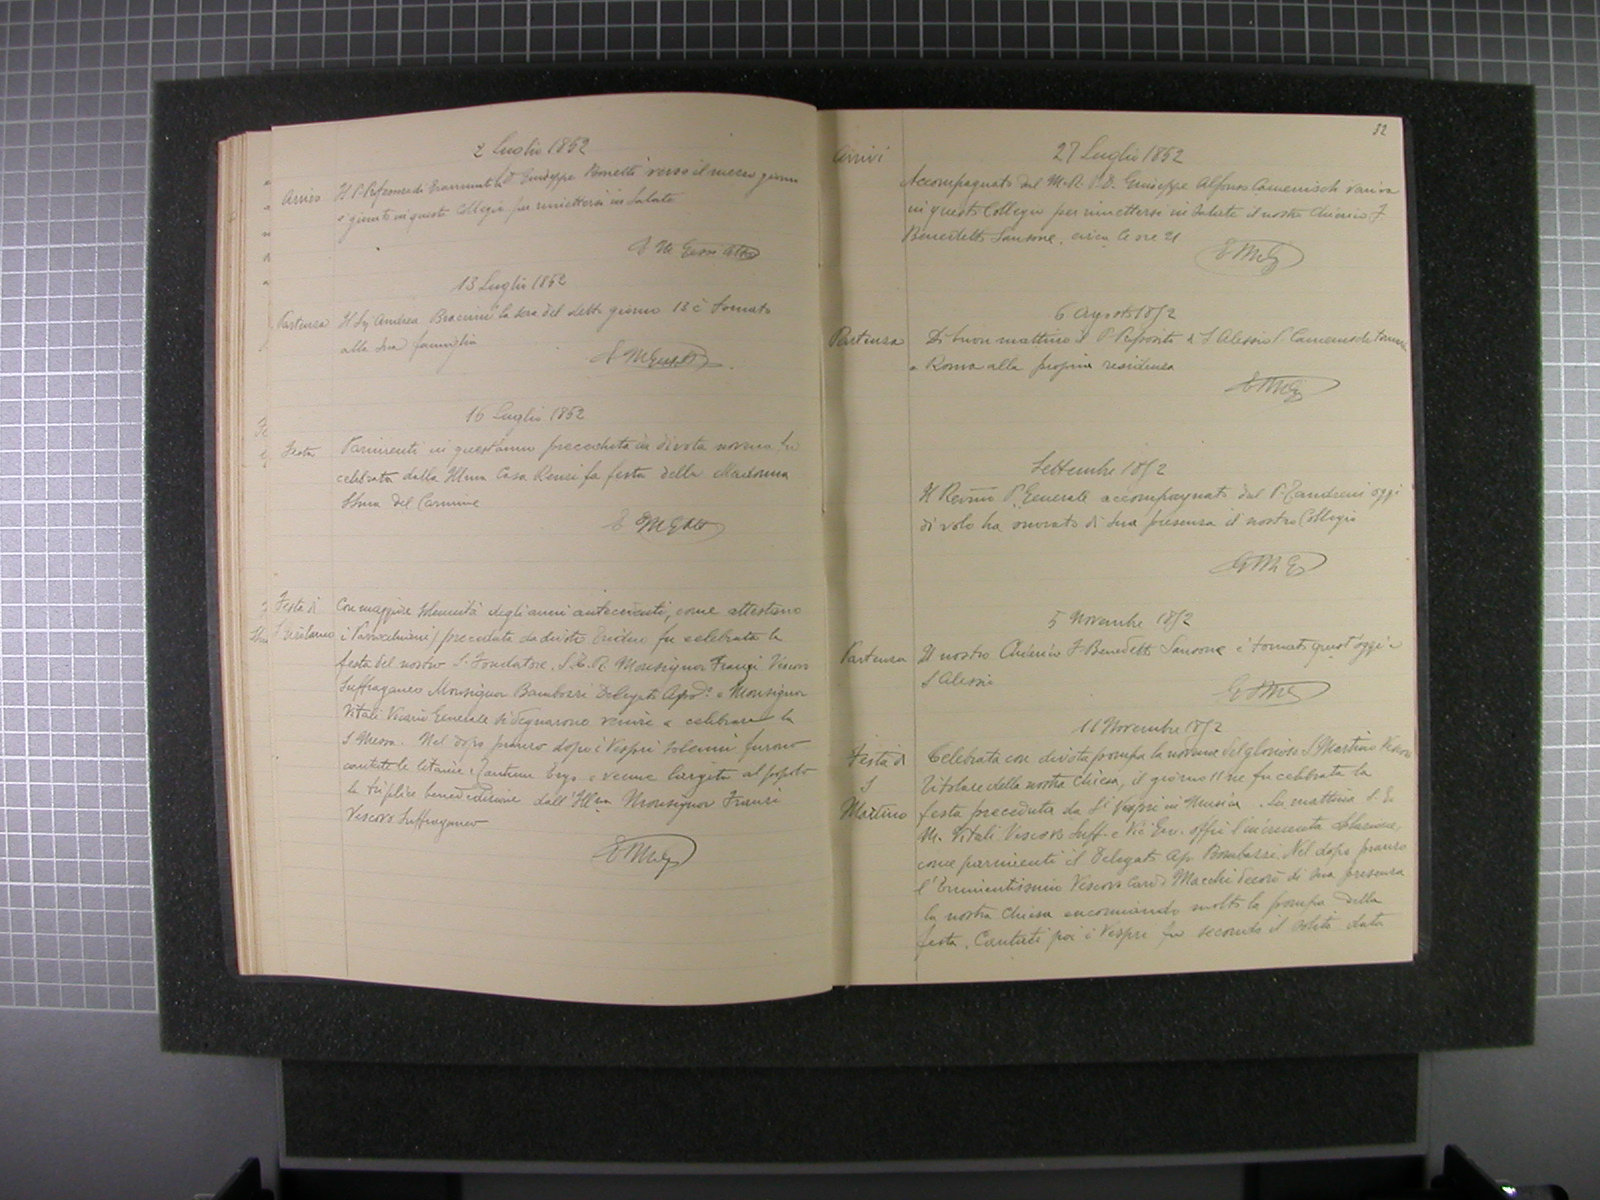 2 Luglio 1852
Arrivo
Il P. Professore di Grammatica D. Giuseppe Bonetti verso il mezzo giorno
è giunto in questo Collegio per rimettersi in Salute
13 Luglio 1852
Partenza
Il Sig. Andrea Braccini la sera del detto giorno 13 è tornato
alla sua famiglia
16 Luglio 1852
Festa
Parimenti in quest'anno preceduta da divota novena fu
celebrata dalla Illma Casa Rensi la festa della Madonna
SSma del Carmine
Festa di
S. Girolamo
Con maggiore solennità degli anni antecedenti, come attestano
i Parrocchiani, preceduta da divoto Triduo fu celebrata la
festa del nostro S. Fondatore. S. E. R. Monsignor Franzi Vescovo
Suffraganeo Monsignor Bambozzi Delegato Apo. e Monsignor
Vitali Vicario Generale si degnarono venire a celebrare la
S. Messa. Nel dopo pranzo dopo i Vespri solenni furono
cantate le litanie, Tantum Ergo e venne largita al popolo
la triplice benedizione dall'Illmo Monsignor Franzi
Vescovo Suffraganeo
32
27 Luglio 1852
Arrivi
Accompagnato dal M. R. P. D. Giuseppe Alfonso Camenisch
in questo Collegio per rimettersi in Salute il nostro Chierico F.
Benedetto Sansone, circa le ore 21
6 Agosto 1852
Partenza
Di buon mattino il P. Preposito di S. Alessio P. Camenisch torna
a Roma alla propria residenza
Settembre 1852
Il Revmo P. Generale accompagnato dal P. Zandrini oggi
di volo ha onorato di sua presenza il nostro Collegio
5 Novembre 1852
Partenza
Il nostro Chierico F. Benedetto Sansone è tornato quest'oggi a
S. Alessio
11 Novembre 1852
Festa di
S
Martino
Celebrata con divota pompa la novena del glorioso S. Martino Vescovo
Titolare della nostra Chiesa, il giorno 11 ne fu celebrata la
festa preceduta da Vespri in Musica. La mattina S. E.
M. Vitali Vescovo Suff. e Vic. Gen. offrì l'incruenta
come parimenti il Delegato Ap. Bombozzi. Nel dopo pranzo
l'Eminentissimo Vescovo Card. Macchi decorò di sua presenza
la nostra Chiesa encomiando molto la pompa della
festa. Cantati poi i Vespri fu secondo il solito data